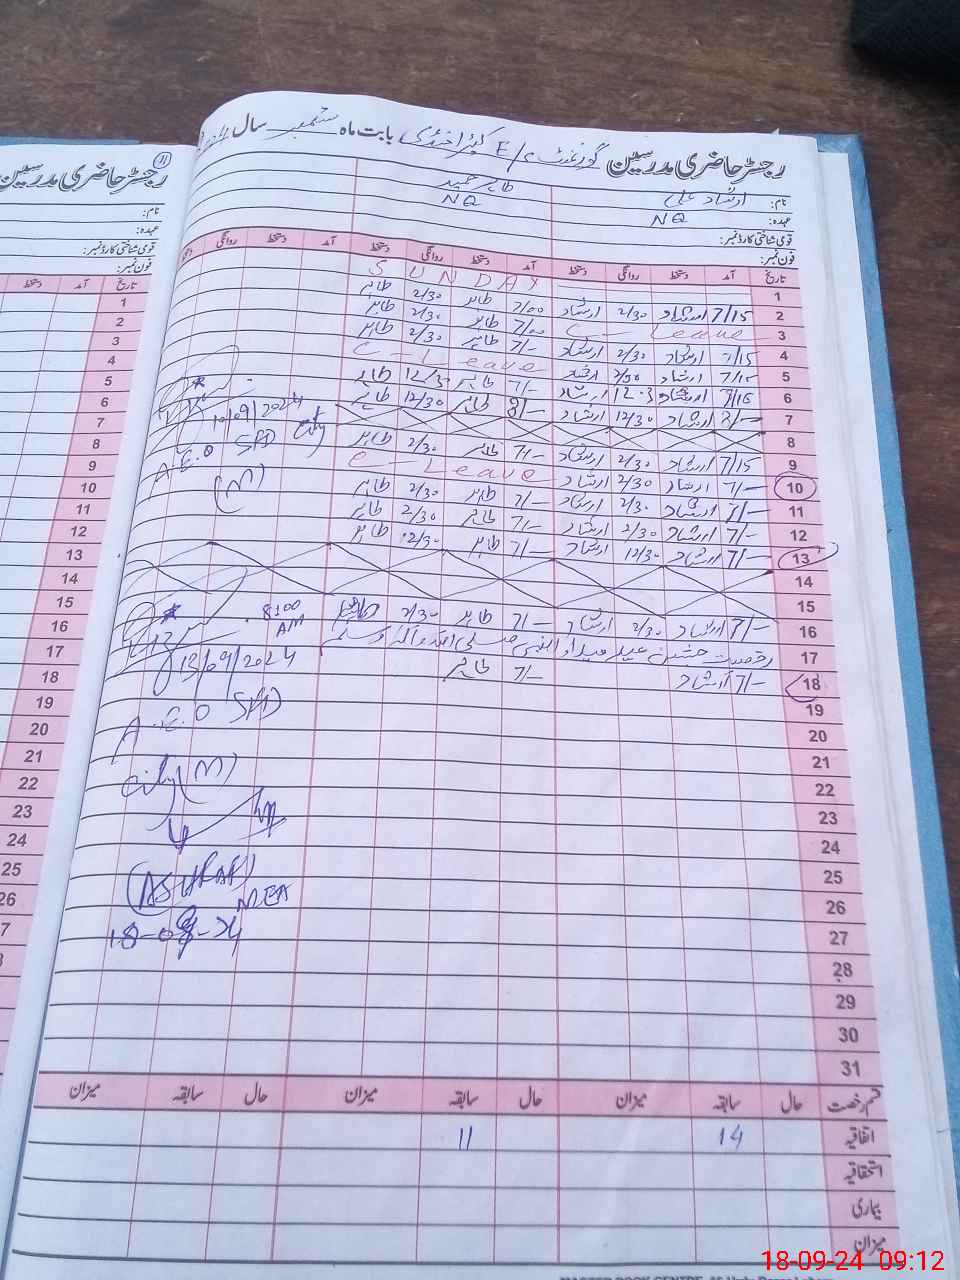 رجسٹر حاضری مدرسین گورنمنٹ E/S بابت ماہ ستمبر سال
نام: ارشاد علی طاہر حمید
عہدہ: NQ NQ
قومی شناختی کارڈ نمبر:
فون نمبر:
تاریخ آمد دستخط روانگی دستخط آمد دستخط روانگی دستخط آمد دستخط روانگی
1 SUNDAY
2 7/15 ارشاد 2/30 ارشاد 7/00 طاہر 2/30 طاہر
3 C-Leave 7/00 طاہر 2/30 طاہر
4 7/15 ارشاد 2/30 ارشاد 7/- طاہر 2/30 طاہر
5 7/15 ارشاد 2/30 ارشاد C-Leave
6 7/15 ارشاد ارشاد 7/- طاہر 12/30 طاہر
7 8/- ارشاد 12/30 ارشاد 8/- طاہر 12/30 طاہر
8
9 7/15 ارشاد 2/30 ارشاد 7/- طاہر 2/30 طاہر
10 7/- ارشاد 2/30 ارشاد C-Leave
11 7/- ارشاد 2/30 ارشاد 7/- طاہر 2/30 طاہر
12 7/- ارشاد 2/30 ارشاد 7/- طاہر 2/30 طاہر
13 7/- ارشاد 12/30 ارشاد 7/- طاہر 12/30 طاہر
14
15
16 7/- ارشاد 2/30 ارشاد 7/- طاہر 2/30 طاہر
17 رخصت جشن عید میلاد النبی صلی اللہ وآلہ وسلم
18 7/- ارشاد 7/- طاہر
19
20
21
22
23
24
25
26
27
28
29
30
31
10/09/2024
A.E.O SFD City
(M)
8:00
AM
13/09/2024
A.E.O SFD
City (M)
(ASHRAF)
MEA
18-09-24
قسم رخصت حال سابقہ میزان حال سابقہ میزان حال سابقہ میزان
اتفاقیہ 14 11
استحقاقیہ
بیماری
میزان
رجسٹر حاضری مدرسین
11
نام:
عہدہ:
قومی شناختی کارڈ نمبر:
فون نمبر:
تاریخ آمد دستخط
1
2
3
4
5
6
7
8
9
10
11
12
13
14
15
16
17
18
19
20
21
22
23
24
25
26
18-09-24 09:12